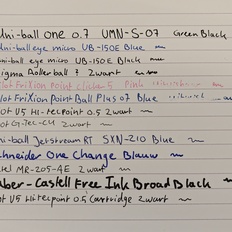 Uni-ball one 0.7 UMN-S-07 Green Black
Uni-ball eye micro UB-150E Blue
uni-ball eye micro UB-150E Black
Sigma Rollerball ? zwart
Pilot FriXion Point Pink
Pilot FriXion Point Ball Plus 07 Blue
Pilot V5 Hi-tecpoint 0.5 zwart
Pilot G-Tec-C4 zwart
Uni-ball Jetstream RT SXN-210 Blue
Schneider One Change Blauw
MR-205-4E zwart
Faber-Castell Free Ink Broad Black
Pilot V5 Hi-tecpoint 0.5 Cartridge zwart